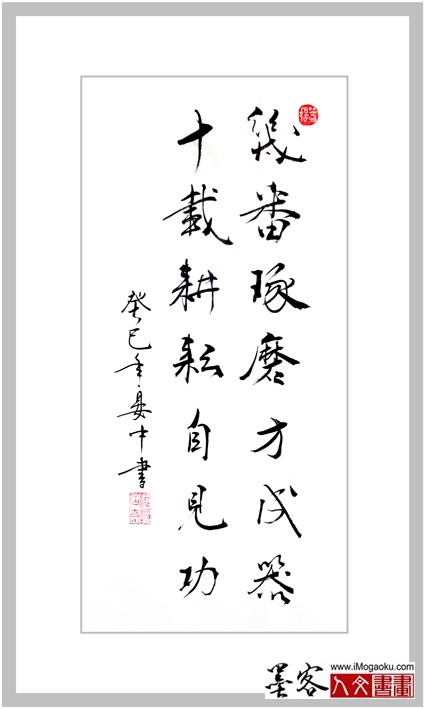 幾番琢磨方成器
十載耕耘自見功
癸巳年晏中書
www.iMogaoku.com
墨客
人文書畫